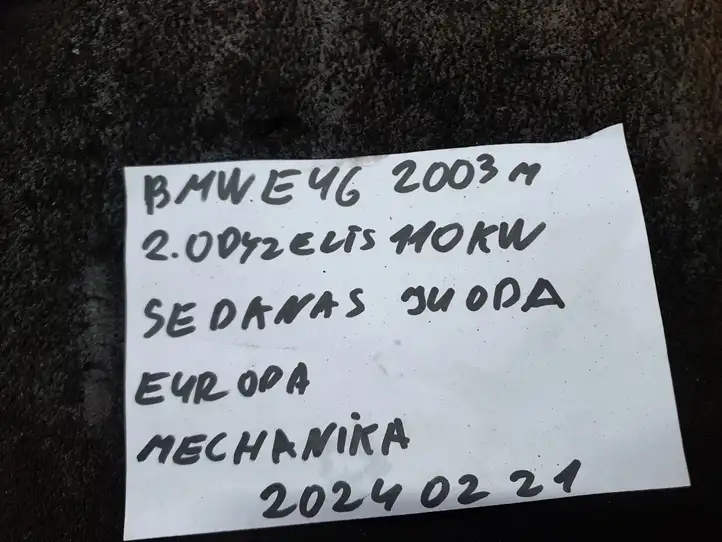 BMW E46 2003 m
2.0 DYZELIS 110 KW
SEDANAS JUODA
EUROPA
MECHANIKA
2024 02 21